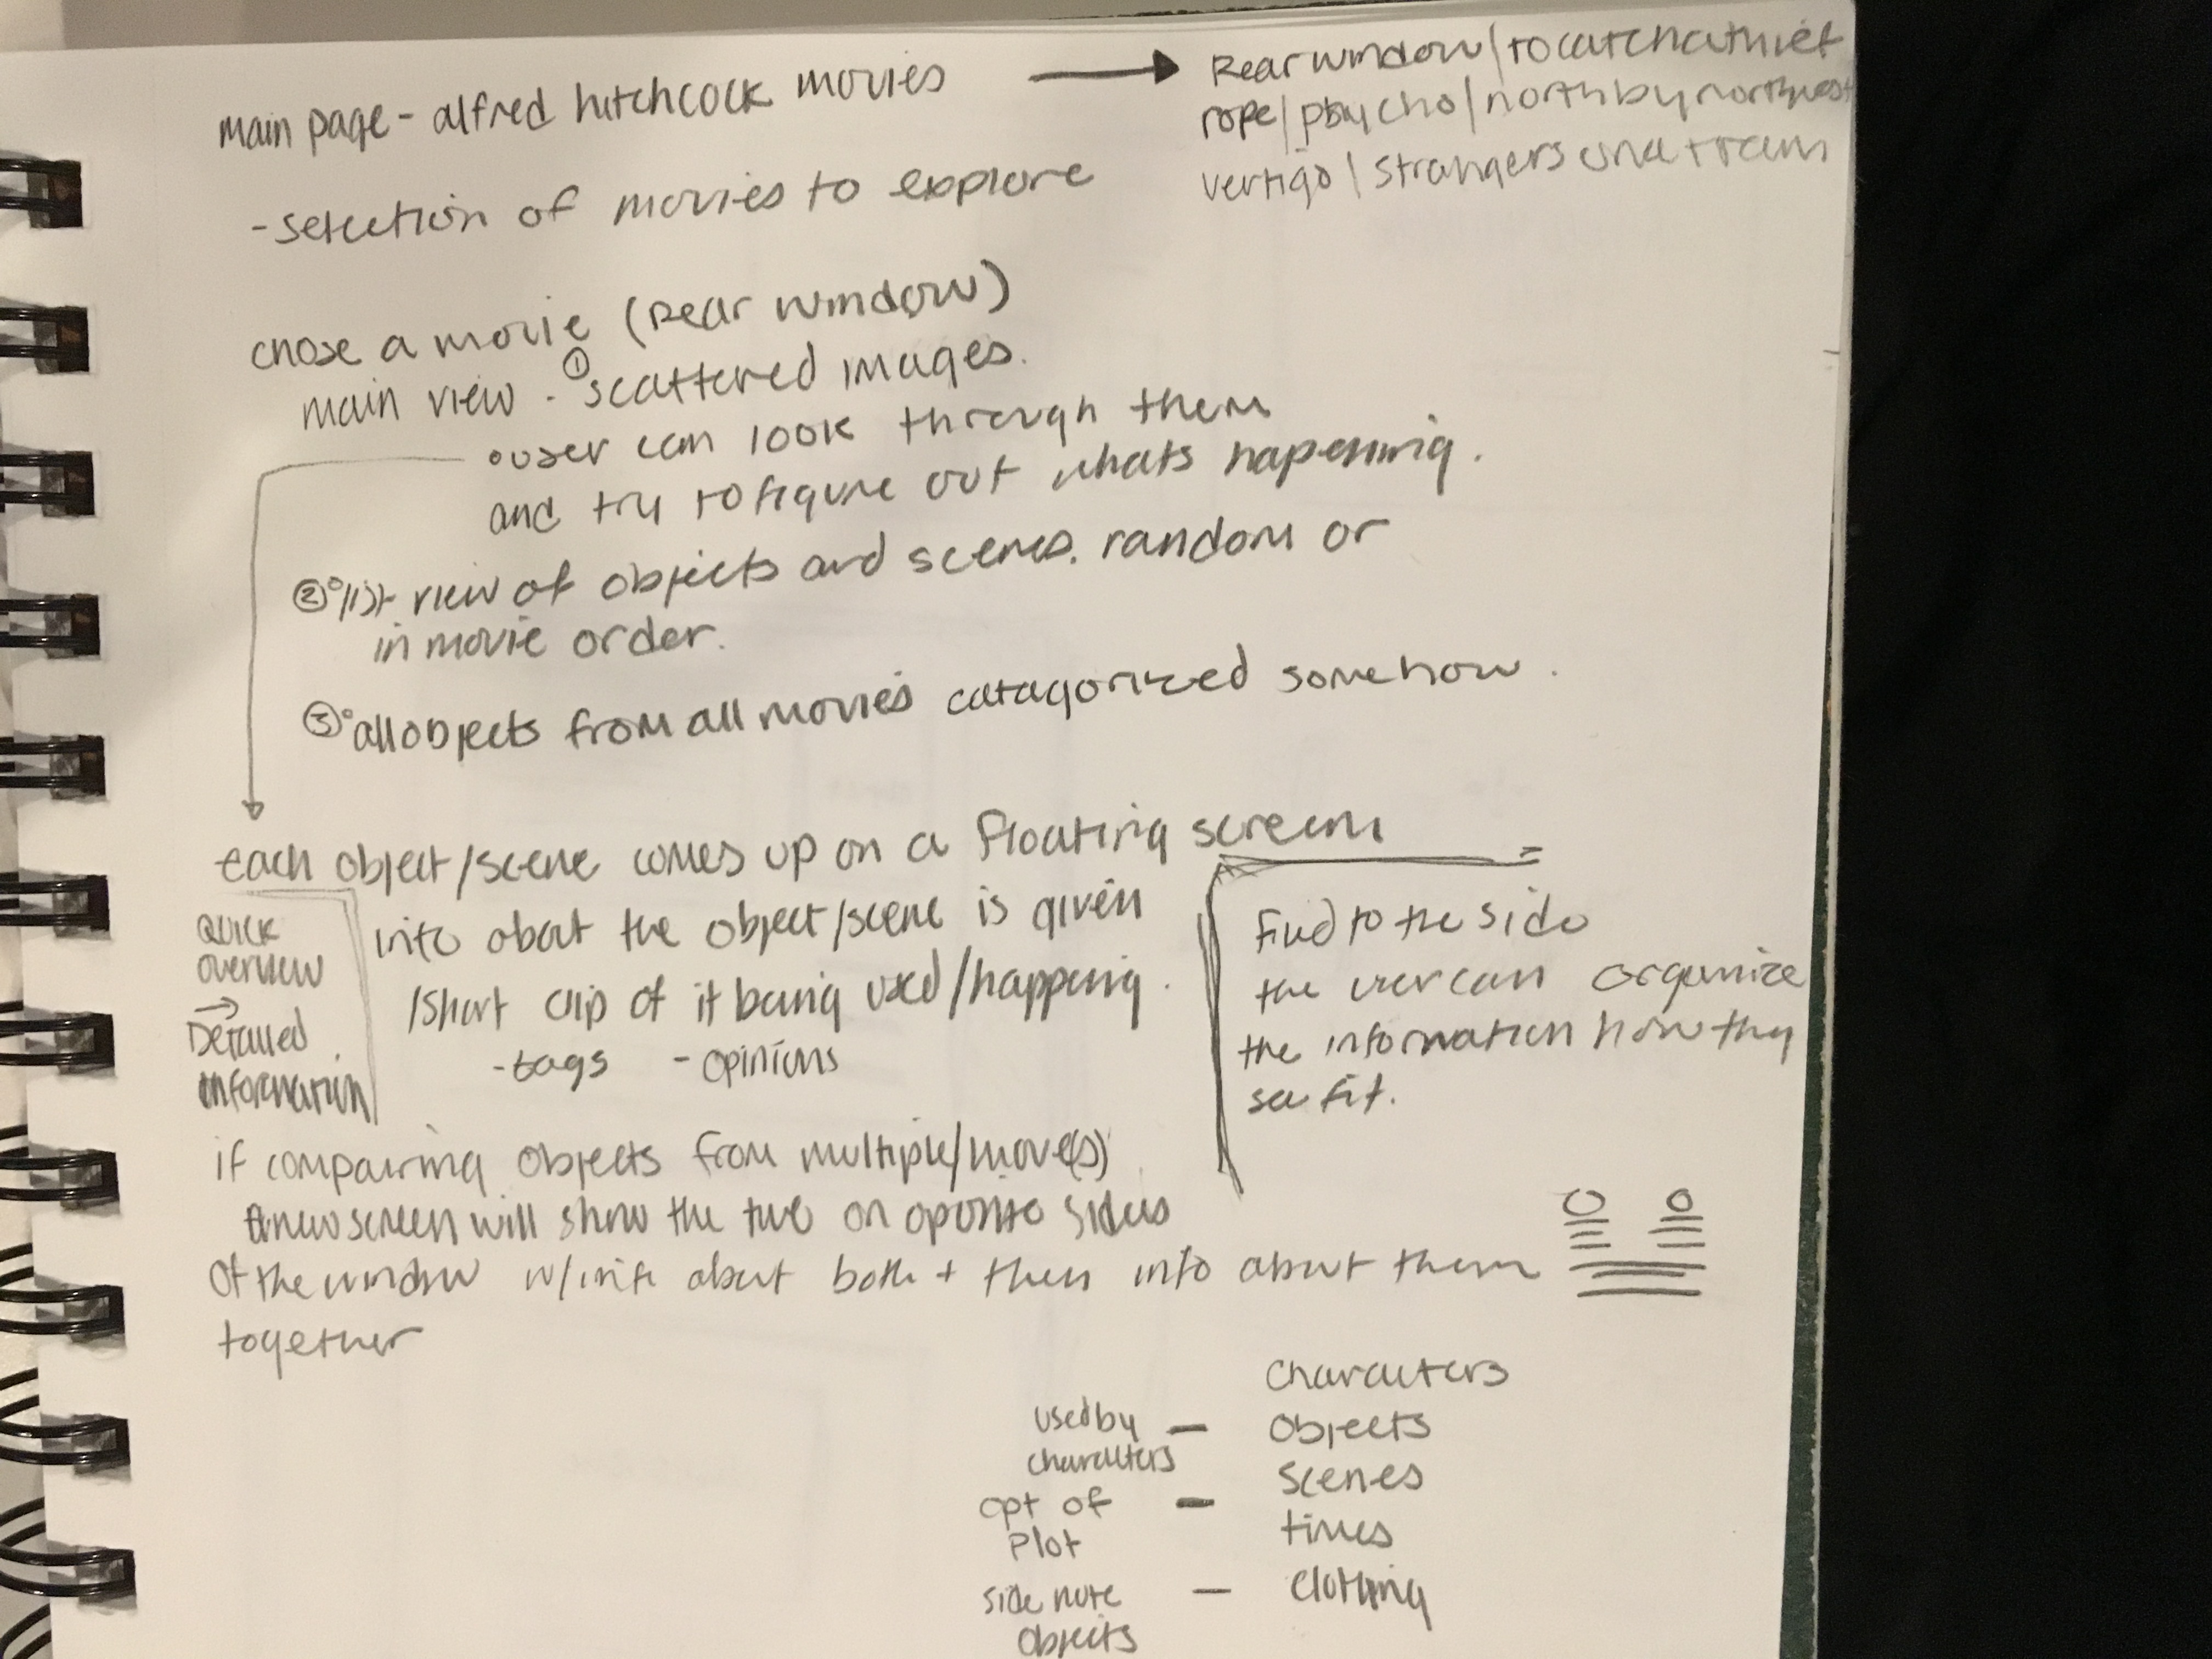 main page - alfred hitchcock movies
Rear window/to catch a thief
rope/psycho/north by northwest
vertigo/strangers on a train
- selection of movies to explore
chose a movie (rear window)
main view . ① scattered images.
user can look through them
and try to figure out whats happening.
② list view of objects and scenes. random or
in movie order.
③ all objects from all movies catagorized somehow.
each object/scene comes up on a floating screen
into about the object/scene is given
/short clip of it being used/happening.
- tags - opinions
quick
overview
→
Detailed
information
find to the side
the user can organize
the information how they
see fit.
if comparing objects from multiple movie(s)
a new screen will show the two on oposite sides
of the window w/info about both + then info about them
together
characters
used by characters — objects
opt of plot — scenes
times
side note objects — clothing